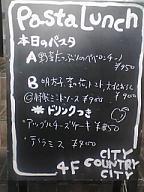 Pasta Lunch
本日のパスタ
A 野菜たっぷりのペペロンチーノ
¥950
B 明太子、菜の花、トマト、大葉
¥900
ミートソース ¥900
※ドリンクつき
アップルチーズケーキ ¥850
ティラミス ¥900
4F CITY
COUNTRY
CITY